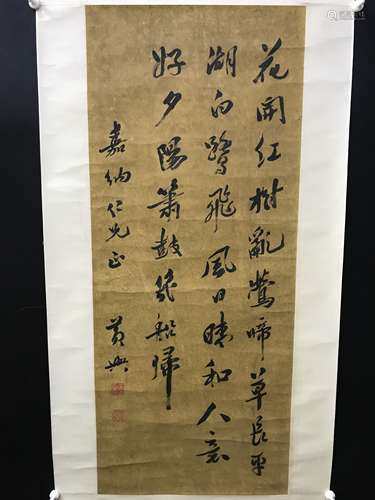 花開紅樹亂鶯啼草長平
湖白鷺飛風日晴和人意
好夕陽簫鼓幾船歸
嘉納仁兄正
黃興